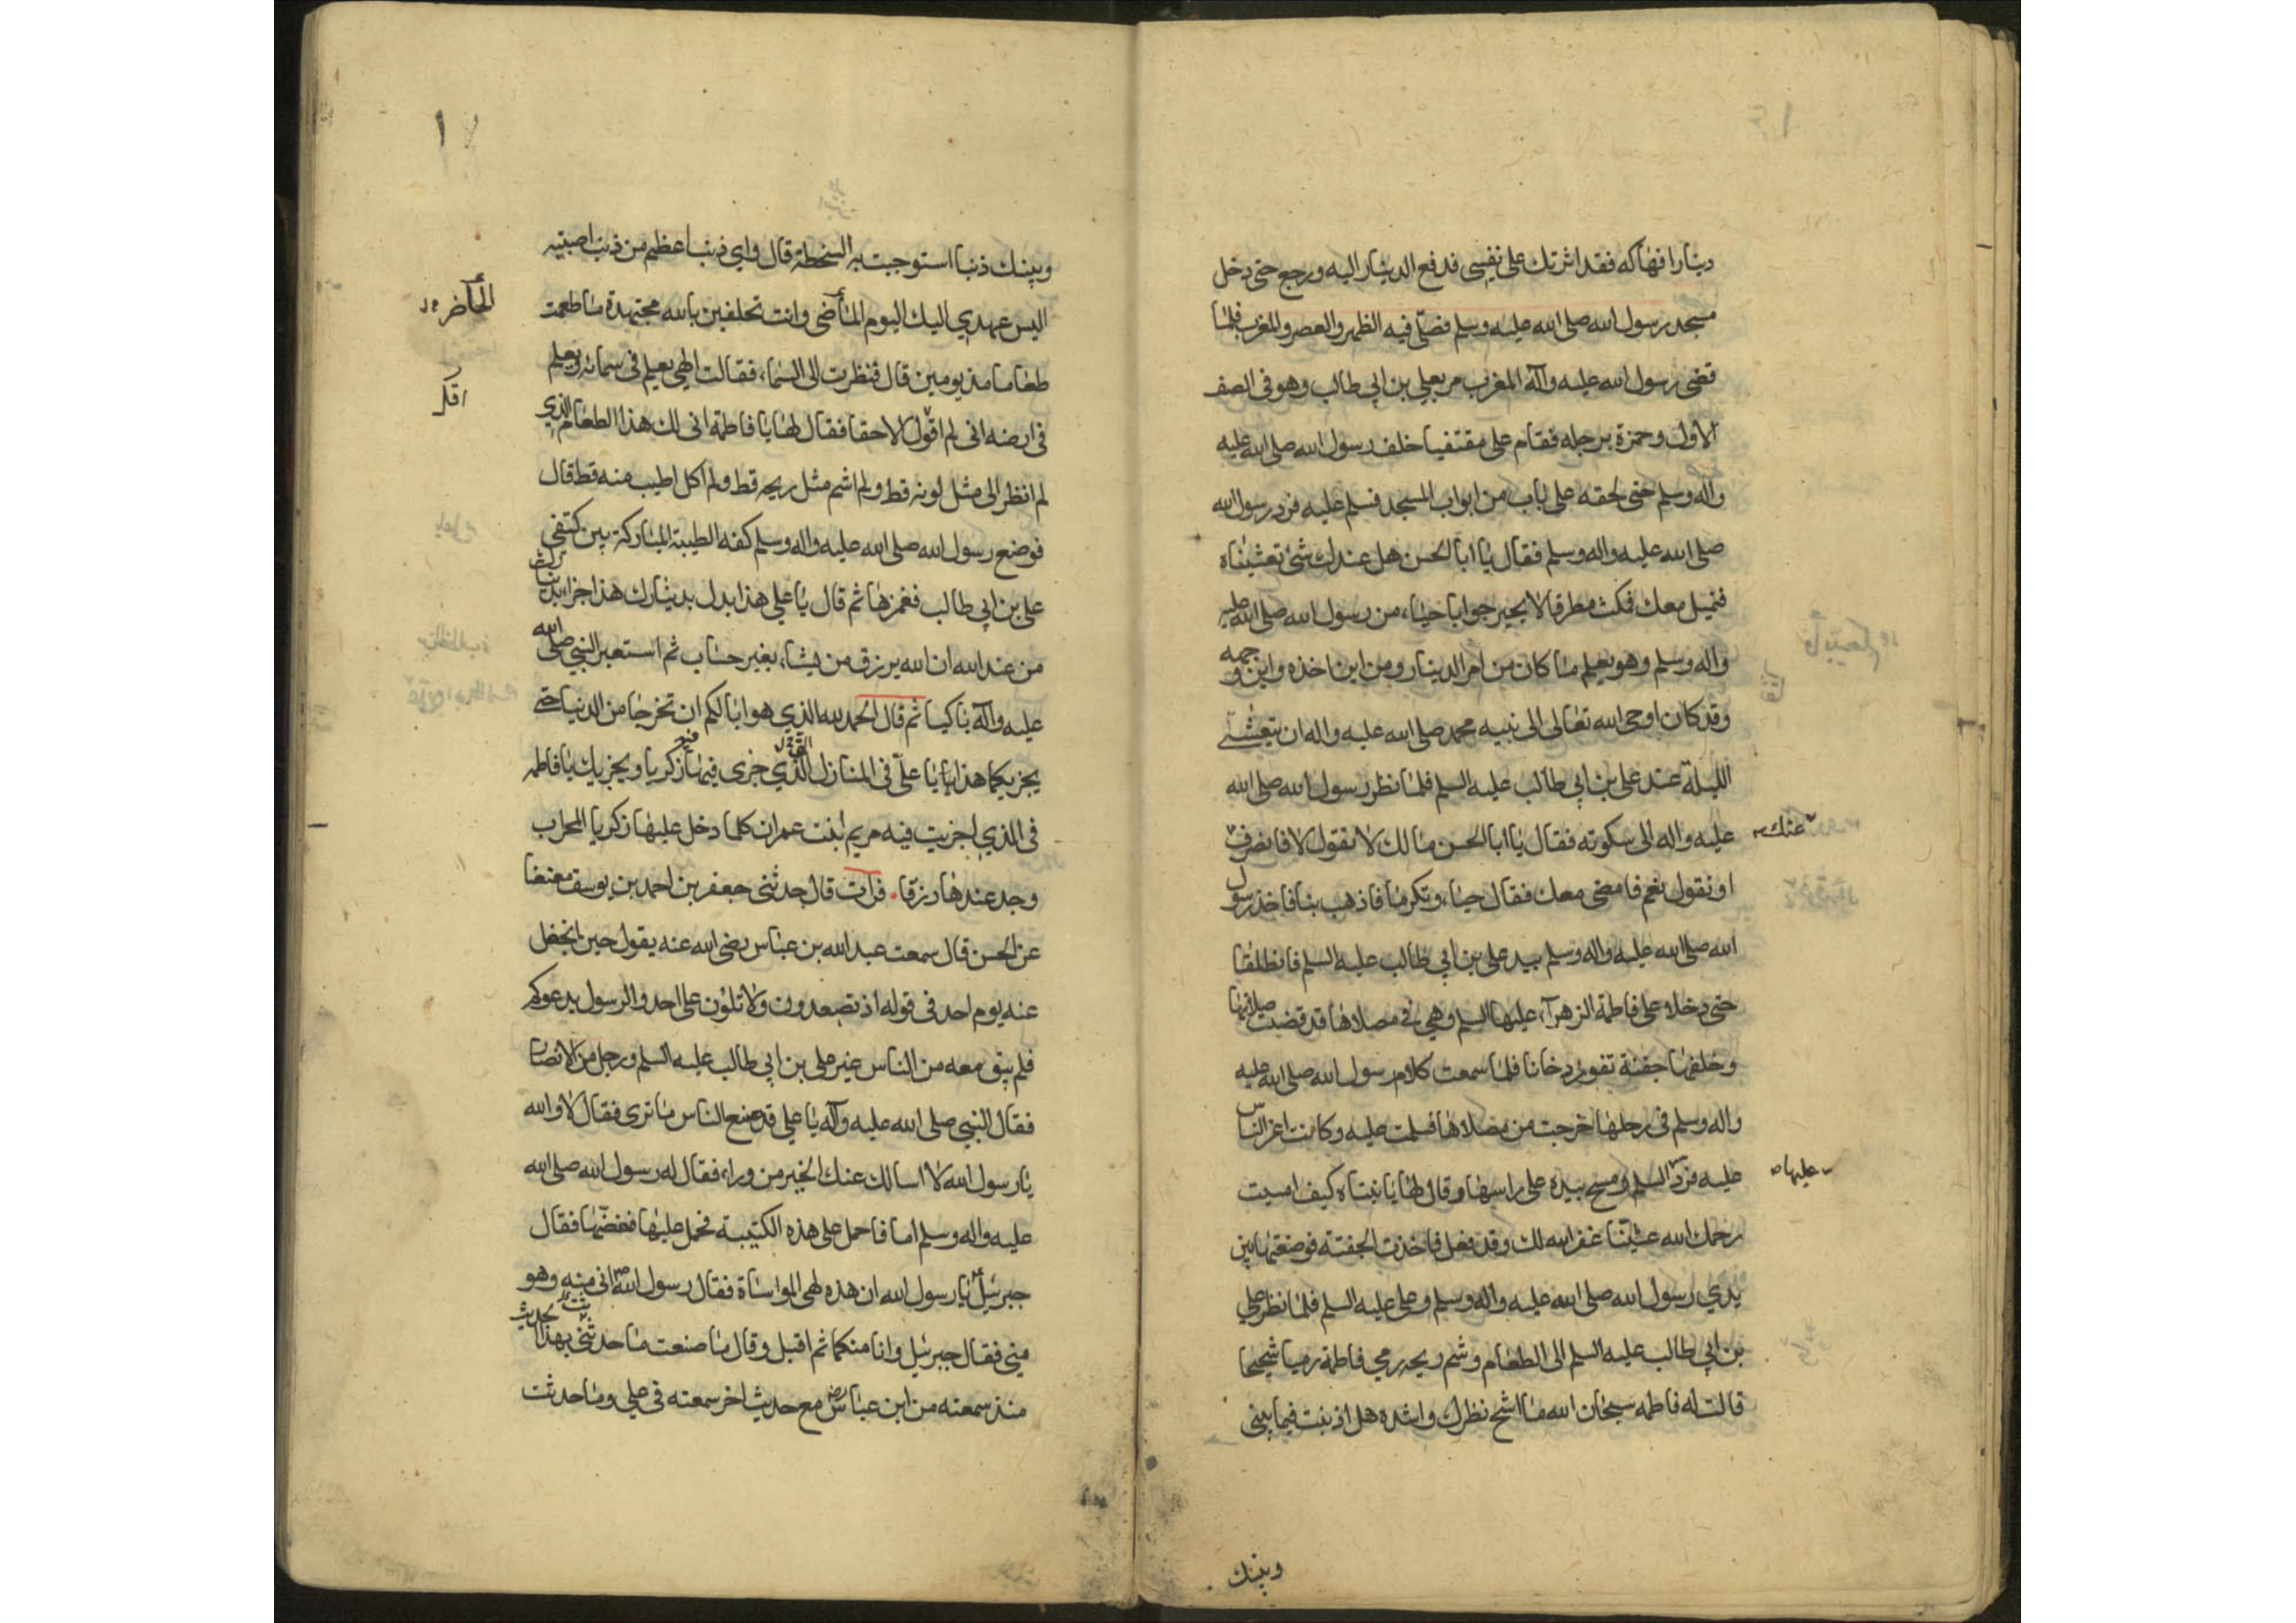 دينارا فهاكه فقد اثرتك على نفسي فدفع الدينار اليه ورجع حتى دخل
مسجد رسول الله صلى الله عليه وسلم فصلى فيه الظهر والعصر والمغرب فلما
قضى رسول الله عليه وآله المغرب مر بعلي بن ابي طالب وهو في الصف
الاول وحمزة برجله فقام على مقتفيا خلف رسول الله صلى الله عليه
واله وسلم حتى لحقه على باب من ابواب المسجد فسلم عليه فرد رسول الله
صلى الله عليه واله وسلم فقال يا ابا الحسن هل عندك شئ تعشيناه
فنميل معك فمكث مطرقا لا يحير جوابا حياء من رسول الله صلى الله عليه
واله وسلم وهو يعلم ما كان من امر الدينار ومن اين اخذه واين وجهه
وقد كان اوحى الله تعالى الى نبيه محمد صلى الله عليه واله ان يتعشى
الليلة عند علي بن ابي طالب عليه السلم فلما نظر رسول الله صلى الله
عليه واله الى سكوته فقال يا ابا الحسن مالك لا تقول لا فانصرف
عنك
او نقول نعم فامضي معك فقال حياء وتكرما فاذهب بنا فاخذ رسول
الله صلى الله عليه واله وسلم بيد علي بن ابي طالب عليه السلم فانطلقا
حتى دخلا على فاطمة الزهرآء عليها السلم وهي في مصلاها قد قضيت صلاتها
وخلفها جفنة تفور دخانا فلما سمعت كلام رسول الله صلى الله عليه
واله وسلم في رحلها خرجت من مصلاها فسلمت عليه وكانت اعز الناس
عليه فرد السلم ومسح بيده على راسها وقال لها يا بنتاه كيف امسيت
عليها
رحمك الله عشيتنا غفر الله لك وقد فعل فاخذت الجفنة فوضعتها بين
يدي رسول الله صلى الله عليه واله وسلم وعلي عليه السلم فلما نظر علي
بن ابي طالب عليه السلم الى الطعام وشم ريحه رمي فاطمة رميا شحيحا
قالت له فاطمه سبحان الله ما اشح نظرك واشده هل اذنبت فيما بيني
وبينك
١٧
وبينك ذنبا استوجبت به السخطة قال واي ذنب اعظم من ذنب اصبتيه
اليس عهدي اليك اليوم الماضي وانت تحلفين بالله مجتهدة ما طعمت
الحاضر
طعاما مذ يومين قال فنظرت الى السماء فقالت الهي يعلم في سمائه ويعلم
في ارضه اني لم اقول الا حقا فقال لها يا فاطمة انى لك هذا الطعام الذي
اقل
لم انظر الى مثل لونه قط ولم اشم مثل ريحه قط ولم اكل اطيب منه قط قال
فوضع رسول الله صلى الله عليه واله وسلم كفه الطيبة المباركة بين كتفي
علي بن ابي طالب فغمزها ثم قال يا علي هذا بدل بدينارك هذا جزاء بدينارك
من عند الله ان الله يرزق من يشاء بغير حساب ثم استعبر النبي صلى الله
عليه وآله باكيا ثم قال الحمد لله الذي هو ابا لكم ان تخرجا من الدنيا حتى
يجزيكما هذا يا علي في المنازل الذي جزى فيها زكريا ويجزيك يا فاطمه
في الذي اجزيت فيه مريم بنت عمران كلما دخل عليها زكريا المحراب
وجد عندها رزقا. فرات قال حدثني جعفر بن احمد بن يوسف معنعنا
عن الحسن قال سمعت عبد الله بن عباس رضي الله عنه يقول حين انجفل
عنه يوم احد في قوله اذ تصعدون ولا تلون على احد والرسول يدعوكم
فلم يبق معه من الناس غير علي بن ابي طالب عليه السلم ورجل من الانصار
فقال النبي صلى الله عليه وآله يا علي قد صنع الناس ما ترى فقال لا والله
يا رسول الله لا اسالك عنك الخبر من وراء فقال له رسول الله صلى الله
عليه واله وسلم اما فاحمل على هذه الكتيبة فحمل عليها ففضها فقال
جبرئيل يا رسول الله ان هذه لهي المواساة فقال رسول الله اني منه وهو
مني فقال جبرئيل وانا منكما ثم اقبل وقال ما صنعت ما حدثني بهذا الحديث
منذ سمعته من ابن عباس مع حديث اخر سمعته في علي وما حدثت